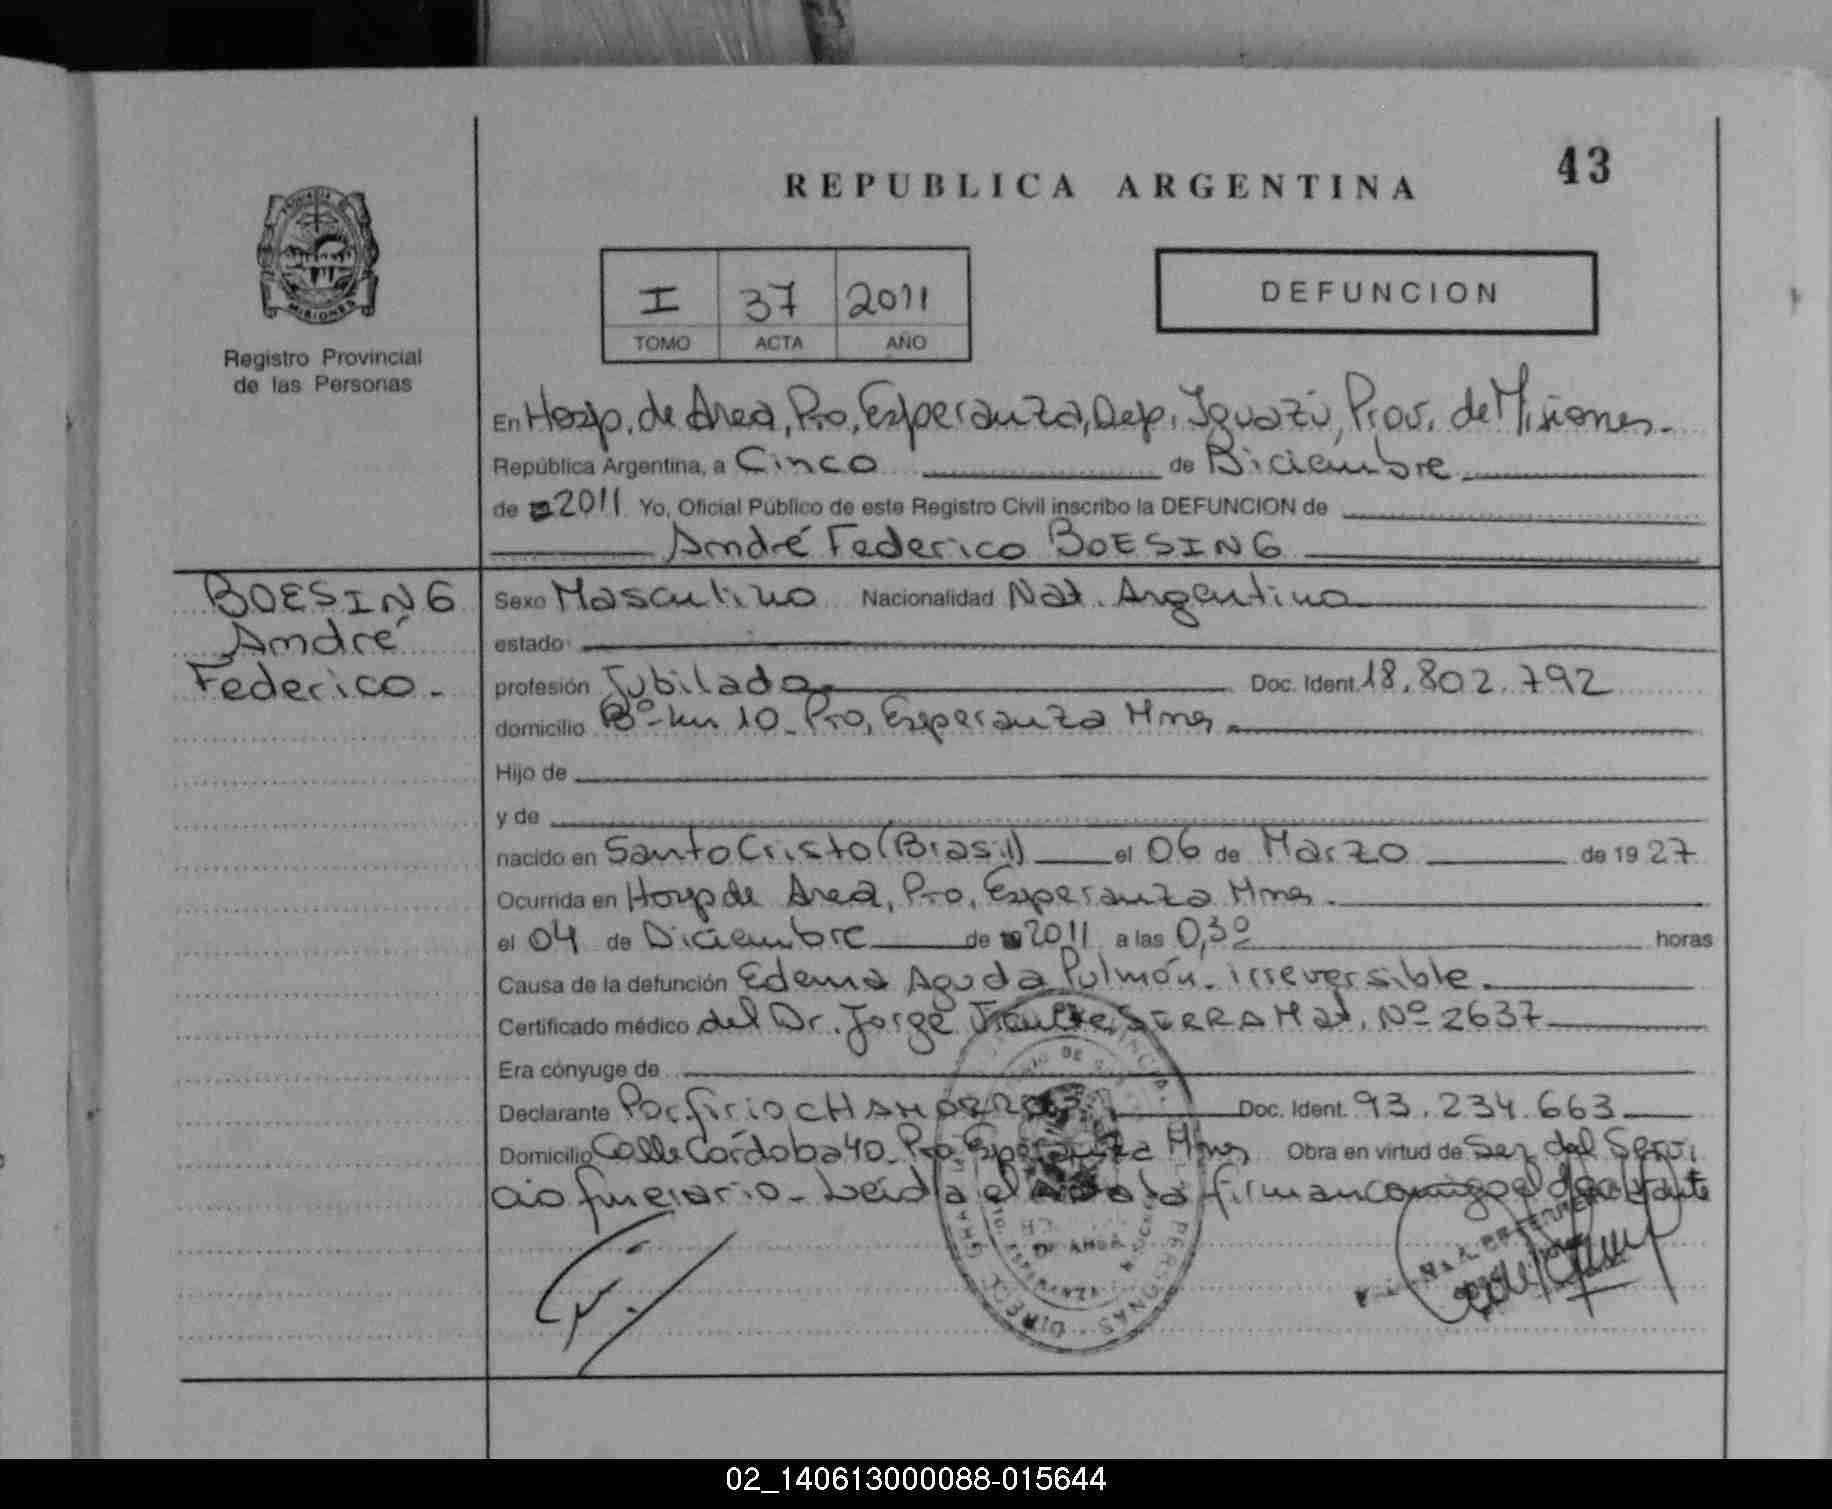 43
REPUBLICA ARGENTINA
DEFUNCION
I 37 2011
TOMO ACTA AÑO
MISIONES
Registro Provincial
de las Personas
En Hosp. de Area, Pto, Esperanza, Dep. Iguazú, Prov. de Misiones.
República Argentina, a Cinco de Diciembre
de 2011 Yo, Oficial Público de este Registro Civil inscribo la DEFUNCION de
André Federico BOESING
BOESING
André
Federico.
Sexo Masculino Nacionalidad Nat. Argentino
estado
profesión Jubilado. Doc. Ident. 18.802.792
domicilio Bº-km 10- Pto, Esperanza Mnes.
Hijo de
y de
nacido en Santo Cristo (Brasil) el 06 de Marzo de 1927
Ocurrida en Hosp de Area, Pto, Esperanza Mnes.
el 04 de Diciembre de 2011 a las 0,30 horas
Causa de la defunción Edema Aguda Pulmón. irreversible.
Certificado médico del Dr. Jorge SIERRA Mat. Nº 2637
Era cónyuge de
Declarante Porfirio CHAMORRO Doc. Ident. 93.234.663
Domicilio Calle Córdoba 40- Pto Esperanza Mnes Obra en virtud de Ser del Servi
cio funerario- Leída el Acta la firman conmigo el declarante
02_140613000088-015644